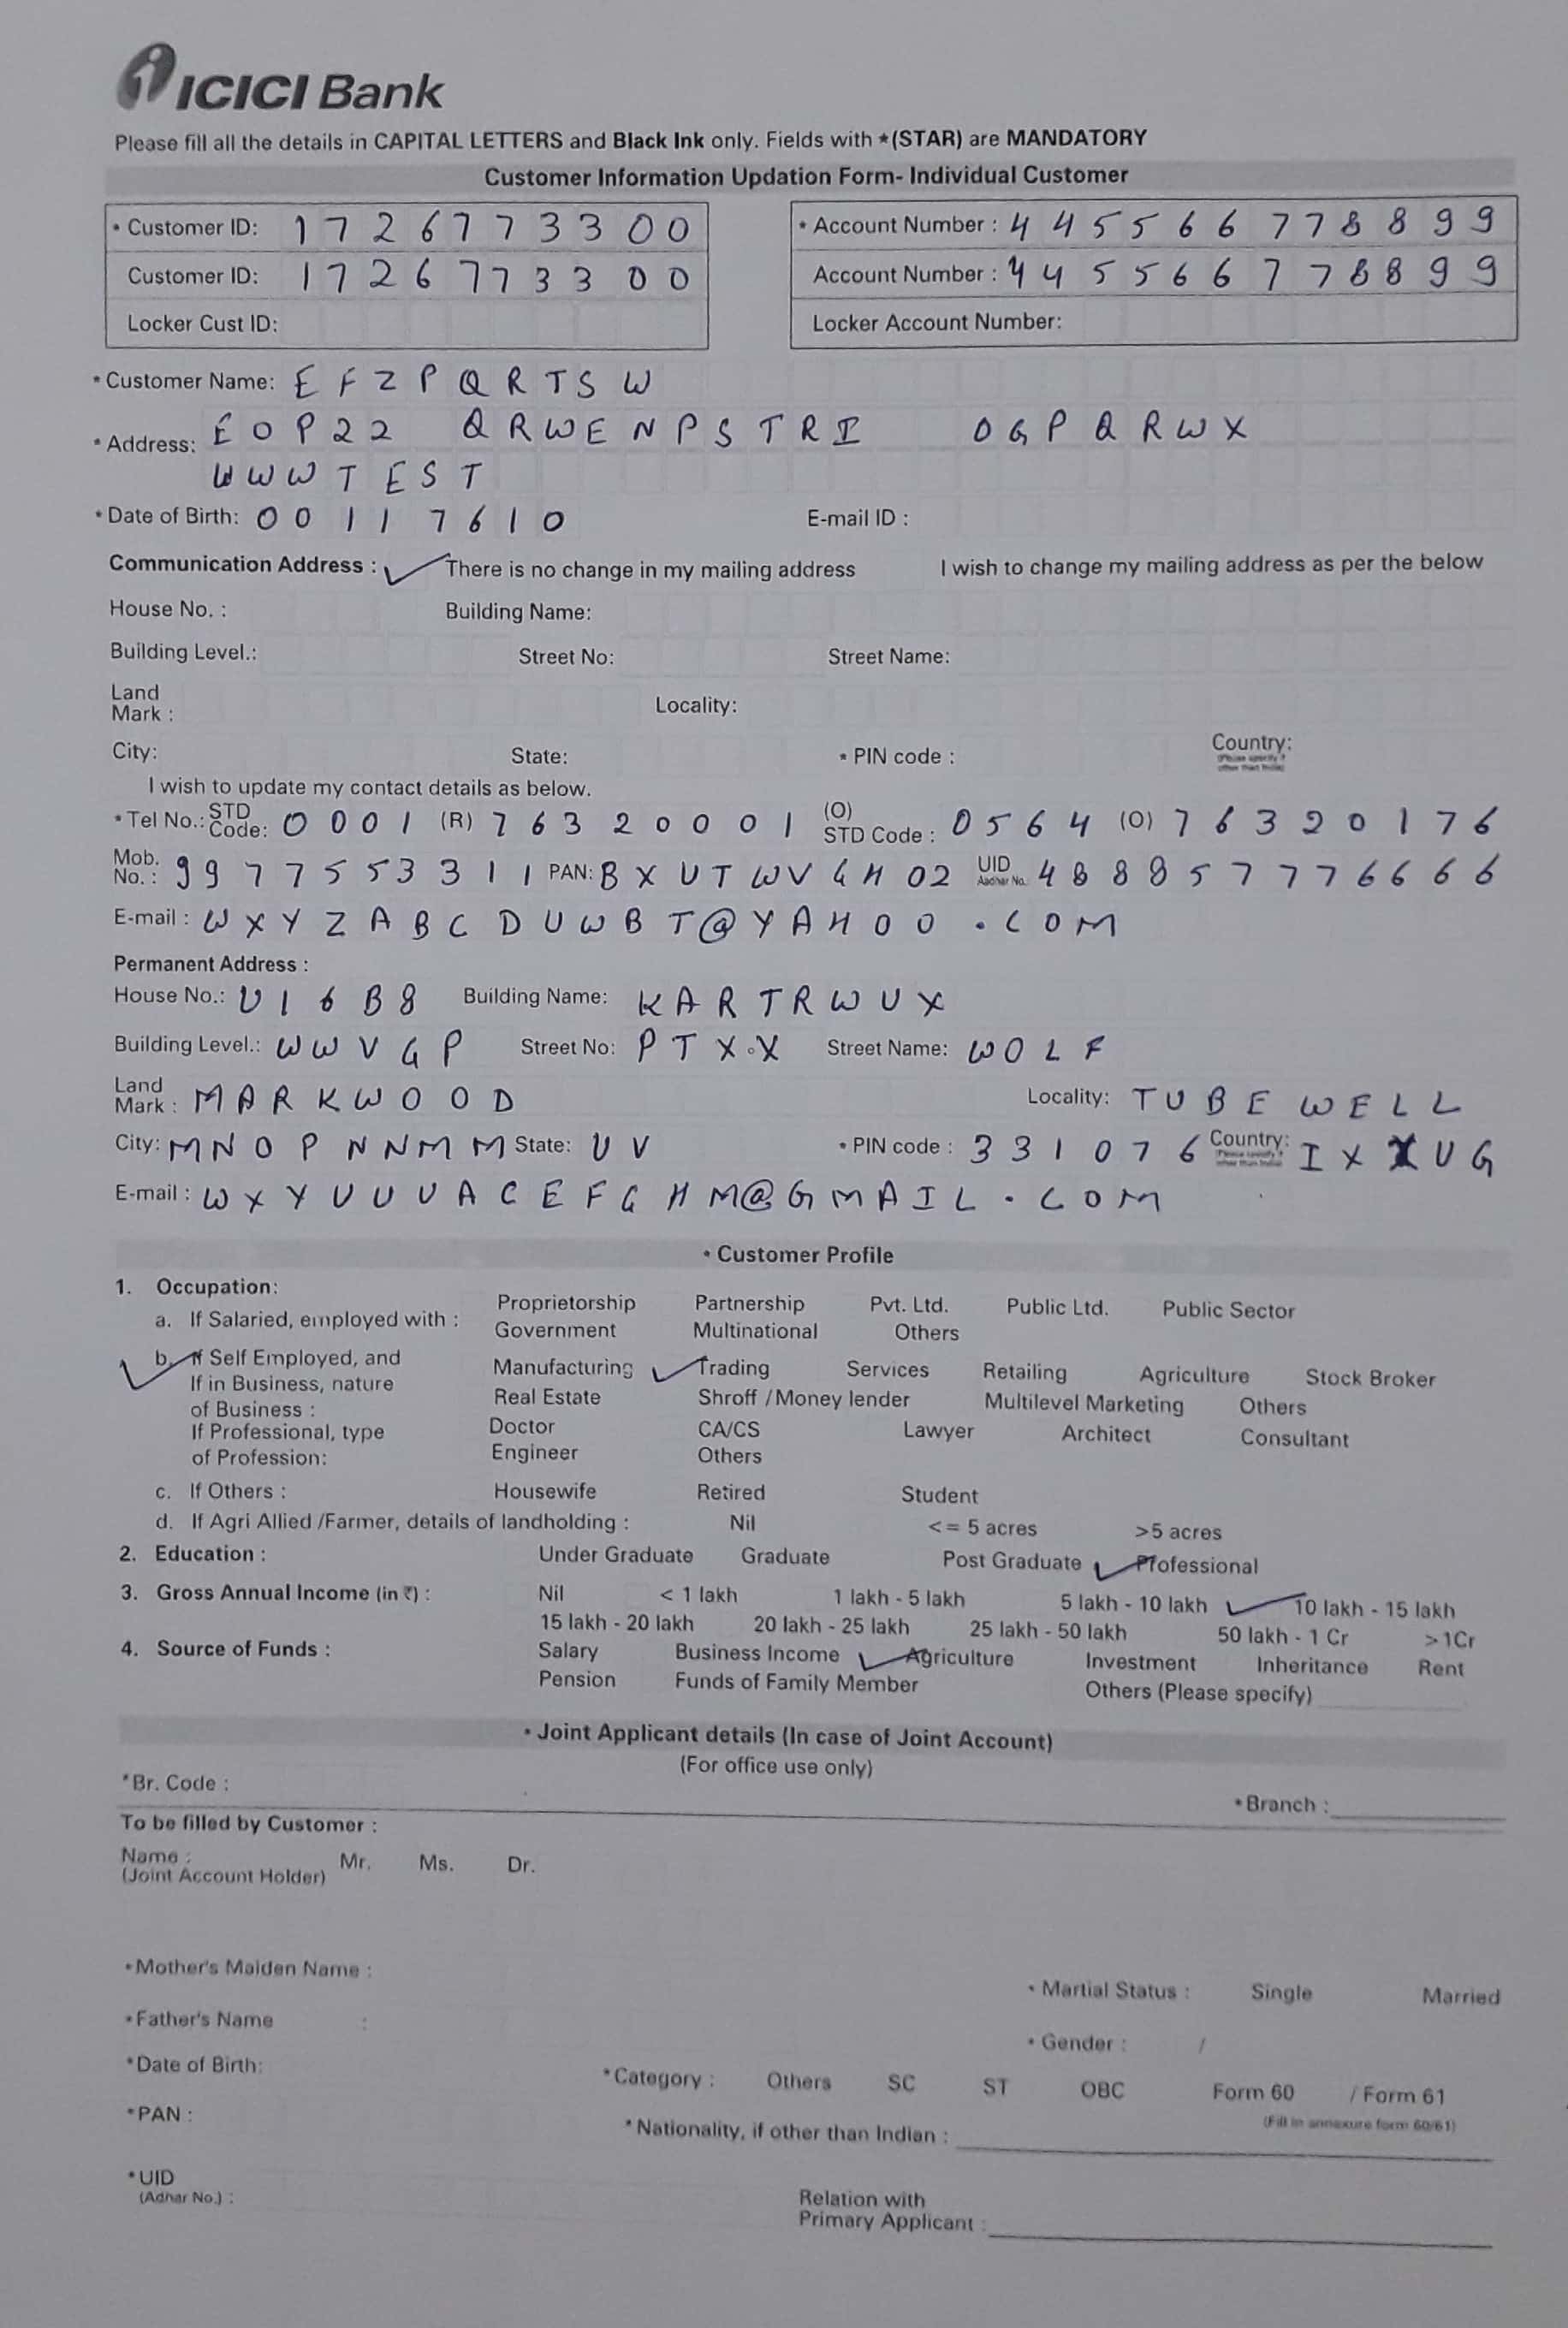 ICICI Bank
Please fill all the details in CAPITAL LETTERS and Black Ink only. Fields with *(STAR) are MANDATORY
Customer Information Updation Form- Individual Customer
* Customer ID: 1726773300 * Account Number : 445566778899
Customer ID: 1726773300 Account Number : 445566778899
Locker Cust ID: Locker Account Number:
* Customer Name: EFZPQRTSW
* Address: EOP22 QRWENPSTRI OGPQRWX
WWWTEST
* Date of Birth: 00117610 E-mail ID :
Communication Address : ✓ There is no change in my mailing address I wish to change my mailing address as per the below
House No. : Building Name:
Building Level.: Street No: Street Name:
Land Mark : Locality:
City: State: * PIN code : Country: (Please specify if other than India)
I wish to update my contact details as below.
* Tel No.: STD Code: 0001 (R) 76320001 (O) STD Code : 0564 (O) 76320176
Mob. No. : 9977553311 PAN: BXUTWVGH02 UID Aadhar No. 488857776666
E-mail : WXYZABCDUWBT@YAHOO.COM
Permanent Address :
House No.: U16B8 Building Name: KARTRWUX
Building Level.: WWVGP Street No: PTX.X Street Name: WOLF
Land Mark : MARKWOOD Locality: TUBEWELL
City: MNOPNNMM State: UV * PIN code : 331076 Country: (Please specify if other than India) IXXUG
E-mail : WXYUUUACEFGHM@GMAIL.COM
* Customer Profile
1. Occupation:
a. If Salaried, employed with : Proprietorship Partnership Pvt. Ltd. Public Ltd. Public Sector
Government Multinational Others
✓ b. If Self Employed, and Manufacturing ✓ Trading Services Retailing Agriculture Stock Broker
If in Business, nature Real Estate Shroff / Money lender Multilevel Marketing Others
of Business :
If Professional, type Doctor CA/CS Lawyer Architect Consultant
of Profession: Engineer Others
c. If Others : Housewife Retired Student
d. If Agri Allied /Farmer, details of landholding : Nil <= 5 acres >5 acres
2. Education : Under Graduate Graduate Post Graduate ✓ Professional
3. Gross Annual Income (in ₹) : Nil < 1 lakh 1 lakh - 5 lakh 5 lakh - 10 lakh ✓ 10 lakh - 15 lakh
15 lakh - 20 lakh 20 lakh - 25 lakh 25 lakh - 50 lakh 50 lakh - 1 Cr >1Cr
4. Source of Funds : Salary Business Income ✓ Agriculture Investment Inheritance Rent
Pension Funds of Family Member Others (Please specify)
* Joint Applicant details (In case of Joint Account)
(For office use only)
*Br. Code : * Branch :
To be filled by Customer :
Name : (Joint Account Holder) Mr. Ms. Dr.
* Mother's Maiden Name : * Martial Status : Single Married
* Father's Name : * Gender : /
*Date of Birth: *Category : Others SC ST OBC Form 60 / Form 61
*PAN : *Nationality, if other than Indian : (Fill in annexure form 60/61)
*UID (Adhar No.) : Relation with Primary Applicant :